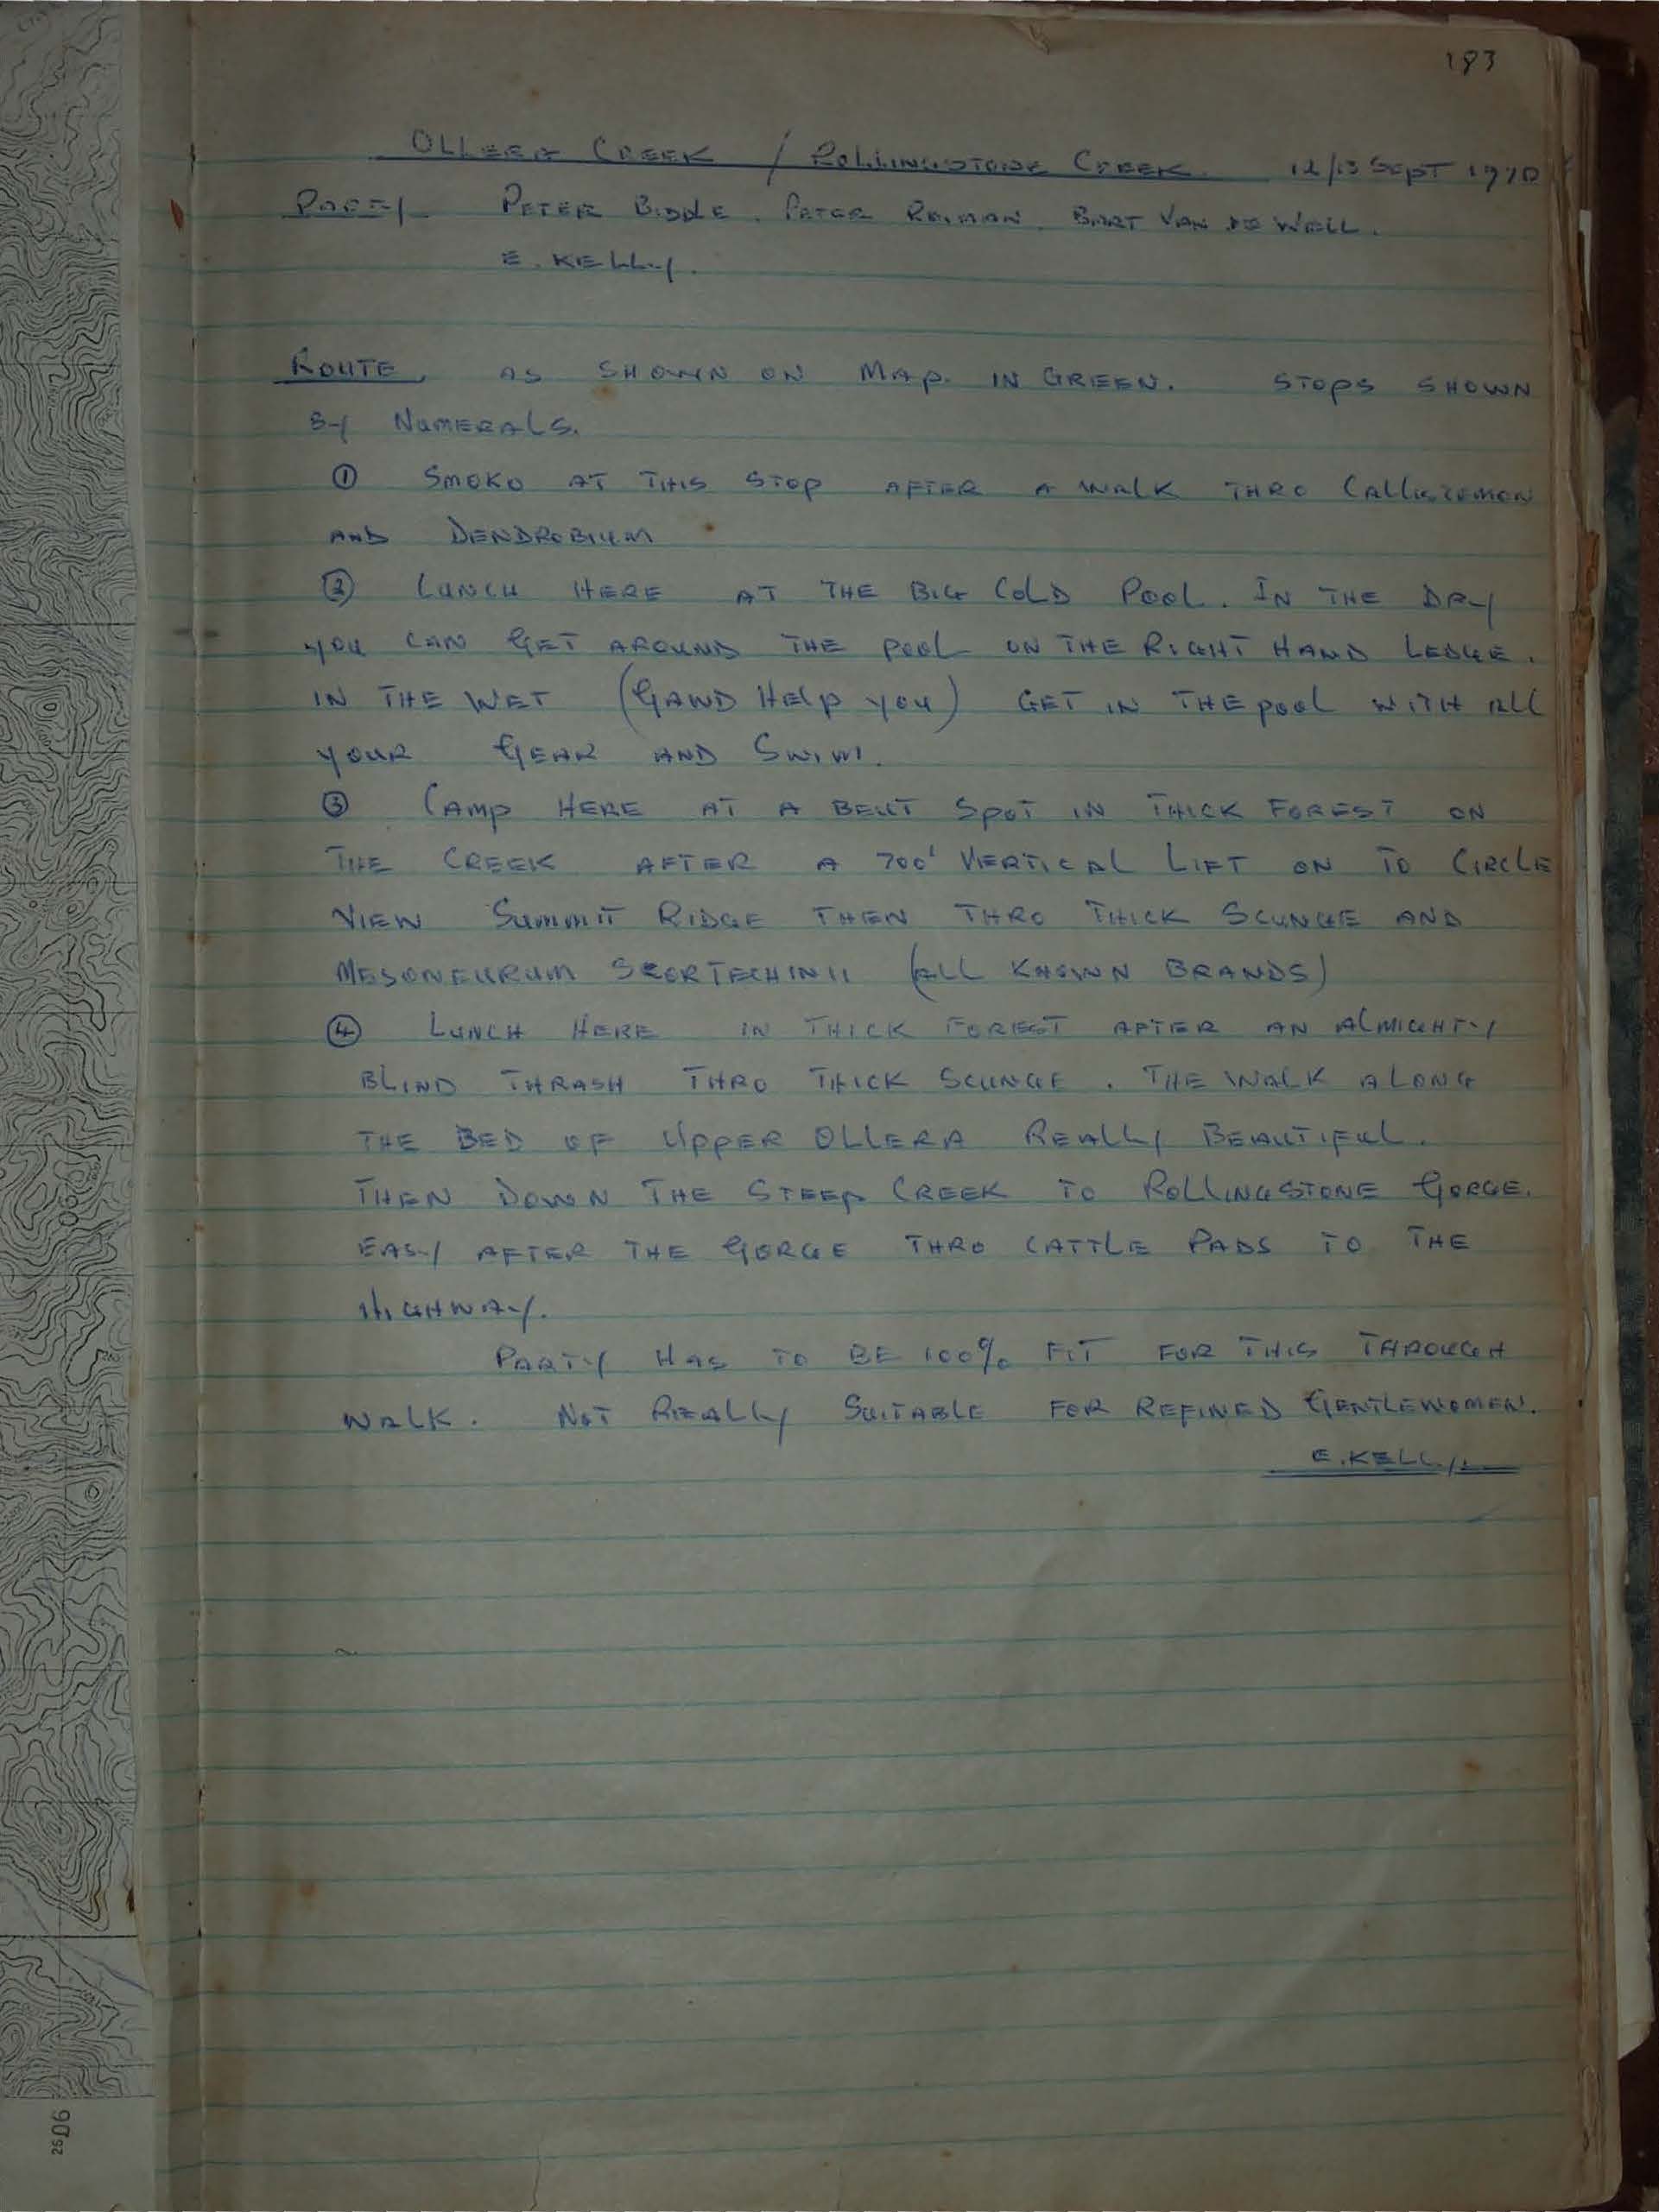 183
OLLERA CREEK / ROLLINGSTONE CREEK. 12/13 SEPT 1970
PARTY PETER BIDDLE. PETER REIMAN. BART VAN DE WELL.
E. KELLY.
ROUTE, AS SHOWN ON MAP. IN GREEN. STOPS SHOWN
BY NUMERALS.
① SMOKO AT THIS STOP AFTER A WALK THRO CALLISTEMON
AND DENDROBIUM
② LUNCH HERE AT THE BIG COLD POOL. IN THE DRY
YOU CAN GET AROUND THE POOL ON THE RIGHT HAND LEDGE.
IN THE WET (GAWD HELP YOU) GET IN THE POOL WITH ALL
YOUR GEAR AND SWIM.
③ CAMP HERE AT A BEAUT SPOT IN THICK FOREST ON
THE CREEK AFTER A 700' VERTICAL LIFT ON TO CIRCLE
VIEW SUMMIT RIDGE THEN THRO THICK SCUNGE AND
MESONEURUM SCORTECHINII (ALL KNOWN BRANDS)
④ LUNCH HERE IN THICK FOREST AFTER AN ALMIGHTY
BLIND THRASH THRO THICK SCUNGE. THE WALK ALONG
THE BED OF UPPER OLLERA REALLY BEAUTIFUL.
THEN DOWN THE STEEP CREEK TO ROLLINGSTONE GORGE.
EASY AFTER THE GORGE THRO CATTLE PADS TO THE
HIGHWAY.
PARTY HAS TO BE 100% FIT FOR THIS THROUGH
WALK. NOT REALLY SUITABLE FOR REFINED GENTLEWOMEN.
E. KELLY
²⁶06